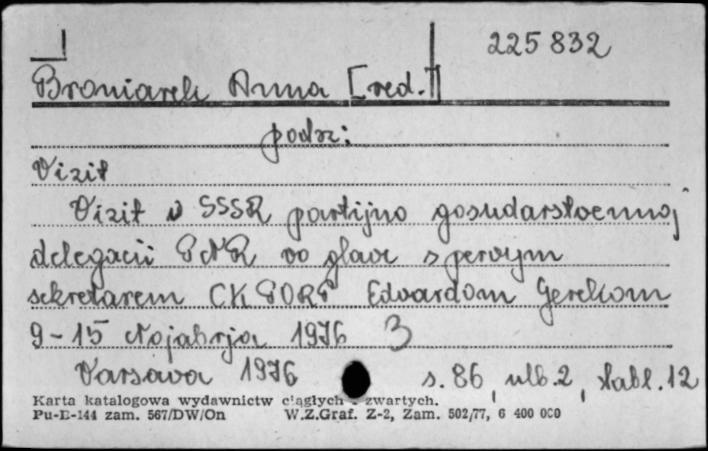 225832
Broniarek Anna [red.]
podz:
Vizit
Vizit v SSSR partijno gosudarstvennoj
delegacii PNR vo glave s pervym
sekretarem CK PORP Edvardom Gerekom
9-15 Nojabrja 1976 3
Varšava 1976 s.86, nlb.2, tabl.12
Karta katalogowa wydawnictw ciągłych - zwartych.
Pu-E-144 zam. 567/DW/On W.Z.Graf. Z-2, Zam. 502/77, 6 400 000